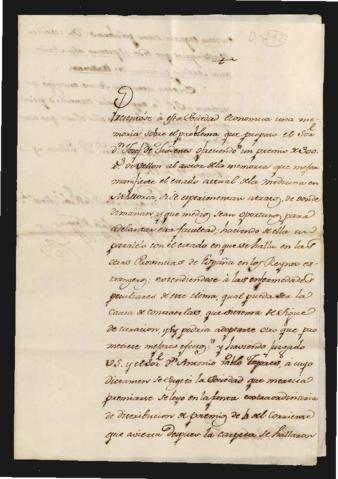 D-212
Presentose á esta Sociedad Economica una me-
moria sobre el problema que propuso el
ofreciendo un premio de 300
de vellon al autor de la memoria que mejor
manifieste el estado actual de la medicina en
Mallorca, si se experimentan atrasos, de donde
demanan y que medios sean oportunos para
adelantar esta facultad, haciendo de ella un
paralelo con el estado en que se halla en las
otras Provincias de España en los Reynos es-
trangeros: extendiendose á las enfermedades
peculiares de este clima, qual pueda ser la
causa de contraerlas, que sistema se sigue
de curacion, y si podria adaptarse otro que pro-
metiese mejores efectos" y haviendo juzgado
V.S. y el Antonio Pablo á cuyo
dictamen se sugetó la Sociedad que merecia
premiarse se leyo en la Junta extraordinaria
de distribucion de premios de 4 del Corriente
que abierta despues la carpeta se hallaron